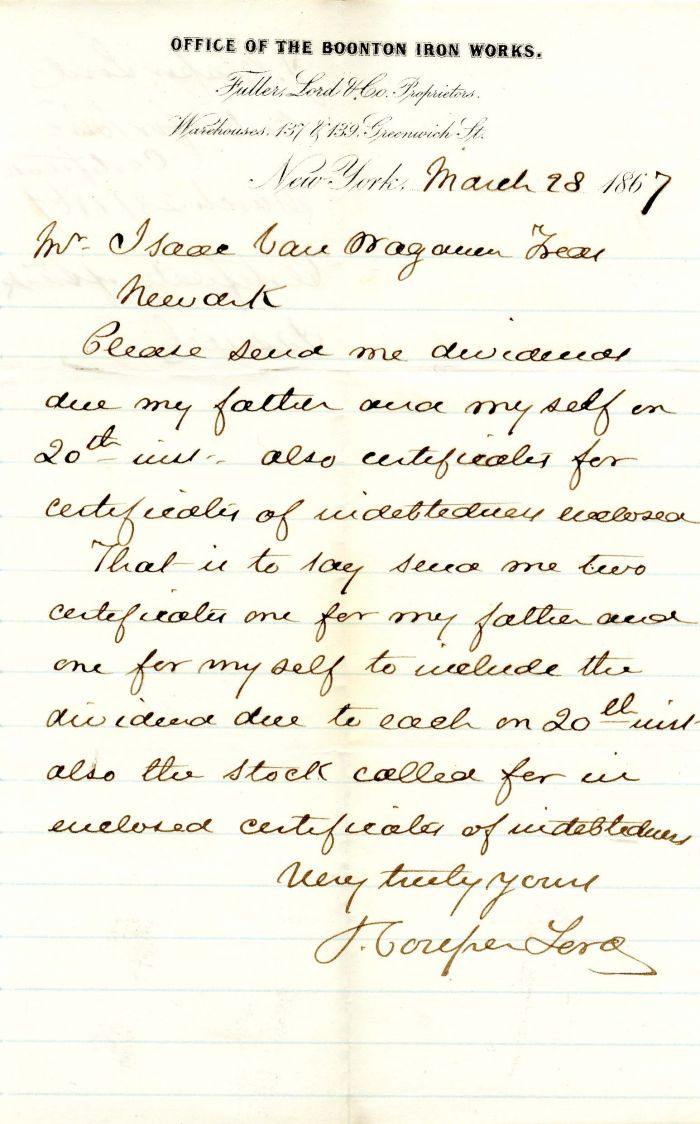 OFFICE OF THE BOONTON IRON WORKS.
Fuller, Lord & Co. Proprietors.
Warehouses. 137 & 139. Greenwich St.
New York, March 28 1867
Mr. Isaac Van Wagenen Treas
Newark
Please send me dividends
due my father and myself on
20th inst. also certificates for
certificates of indebtedness enclosed
That is to say send me two
certificates one for my father and
one for myself to include the
dividend due to each on 20th inst
also the stock called for in
enclosed certificates of indebtedness
Very truly yours
J. Couper Lord